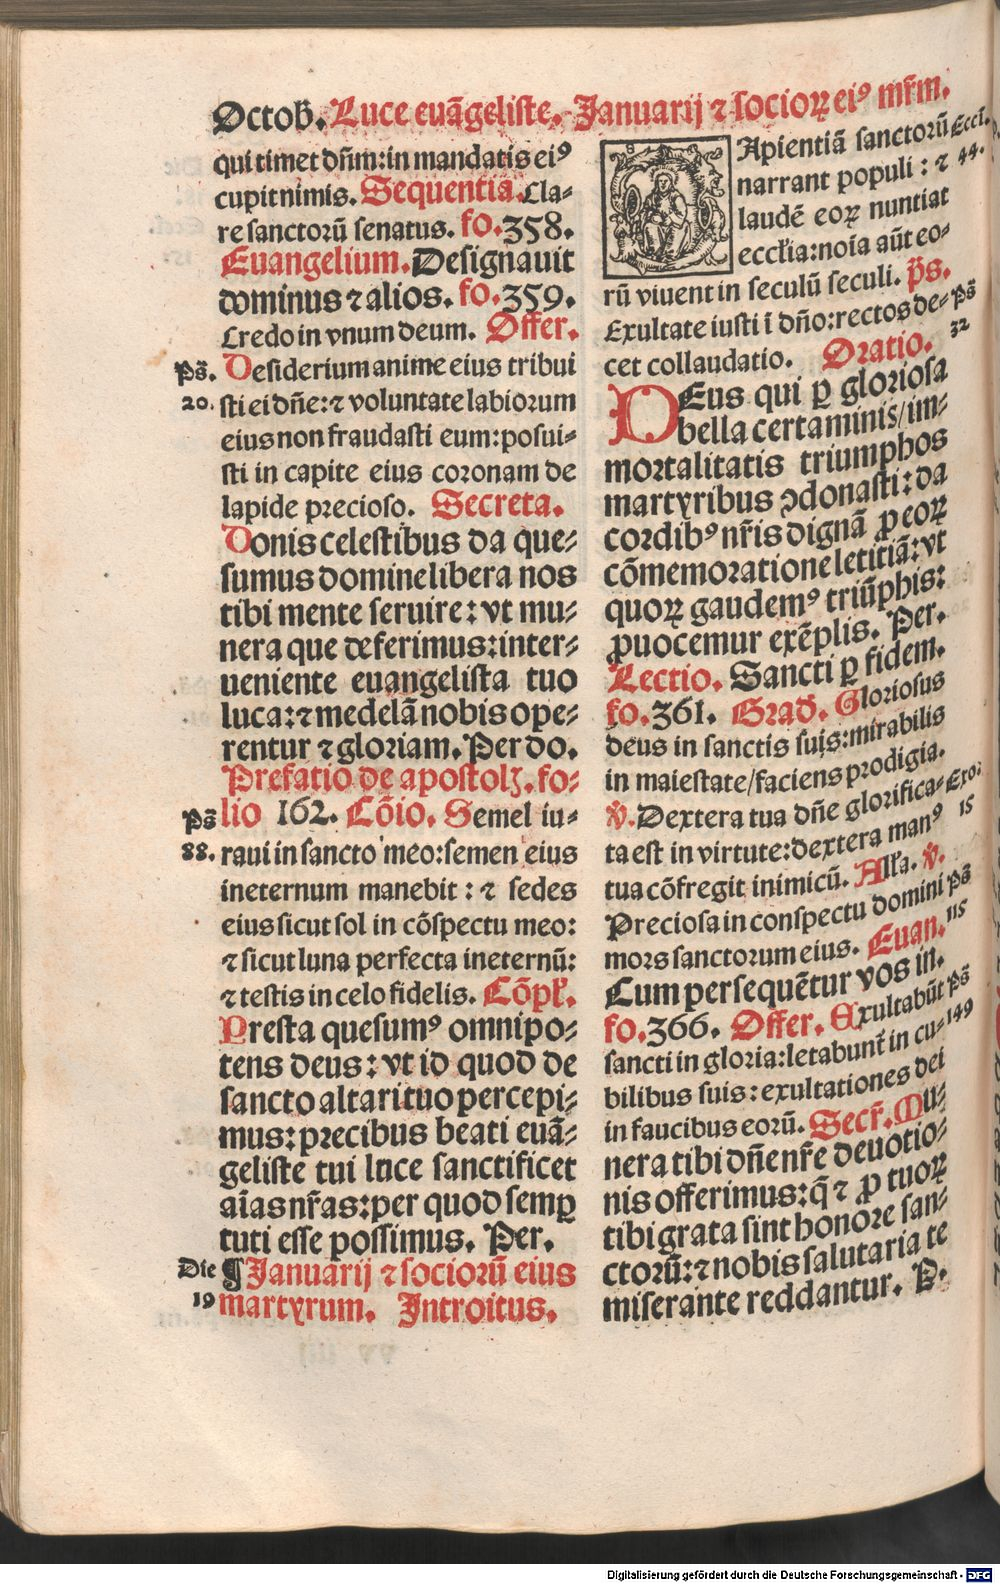 Octob̄. Luce euāgeliste. Januarij ⁊ socioꝝ eiꝰ mr̄m.
qui timet dn̄m: in mandatis eiꝰ
cupit nimis. Sequentia. Cla-
re sanctorū senatus. fo. 358.
Euangelium. Designauit
dominus ⁊ alios. fo. 359.
Credo in vnum deum. Offer.
Ps̄. Desiderium anime eius tribui
20. sti ei dn̄e: ⁊ voluntate labiorum
eius non fraudasti eum: posui-
sti in capite eius coronam de
lapide precioso. Secreta.
Donis celestibus da que-
sumus domine libera nos
tibi mente seruire: vt mu-
nera que deferimus: inter-
ueniente euangelista tuo
luca: ⁊ medelā nobis ope-
rentur ⁊ gloriam. Per do.
Prefatio de apostolꝫ. fo-
Ps̄ lio 162. Cōio. Semel iu-
88. raui in sancto meo: semen eius
ineternum manebit: ⁊ sedes
eius sicut sol in cōspectu meo:
⁊ sicut luna perfecta ineternū:
⁊ testis in celo fidelis. Cōpl̄.
Presta quesumꝰ omnipo-
tens deus: vt id quod de
sancto altari tuo percepi-
mus: precibus beati euā-
geliste tui luce sanctificet
aīas nr̄as: per quod semꝑ
tuti esse possimus. Per.
Die ¶ Januarij ⁊ sociorū eius
19 martyrum. Introitus.
SApientiā sanctorū Eccī.
narrant populi: ⁊ 44.
laudē eoꝝ nuntiat
eccl̄ia: noīa aūt eo-
rū viuent in seculū seculi. p̄s.
Exultate iusti ī dn̄o: rectos de- Ps̄
cet collaudatio. Oratio. 32
DEus qui ꝑ gloriosa
bella certaminis/ im-
mortalitatis triumphos
martyribus ꝯdonasti: da
cordibꝰ nr̄is dignā ꝓ eoꝝ
cōmemoratione letitiā: vt
quoꝝ gaudemꝰ triūphis:
ꝓuocemur exēplis. Per.
Lectio. Sancti ꝑ fidem.
fo. 361. Grad. Gloriosus
deus in sanctis suis: mirabilis
in maiestate/ faciens prodigia.
v̄. Dextera tua dn̄e glorifica- Exo.
ta est in virtute: dextera manꝰ 15
tua cōfregit inimicū. All'a. v̄.
Preciosa in conspectu domini Ps̄
mors sanctorum eius. Euan. 115
Cum persequētur vos in.
fo. 366. Offer. Exultabūt Ps̄
sancti in gloria: letabunt̄ in cu- 149
bilibus suis: exultationes dei
in faucibus eorū. Secr̄. Mu-
nera tibi dn̄e nr̄e deuotio-
nis offerimus: q̄ ⁊ ꝓ tuoꝝ
tibi grata sint honore san-
ctorū: ⁊ nobis salutaria te
miserante reddantur. P.
Digitalisierung gefördert durch die Deutsche Forschungsgemeinschaft - DFG